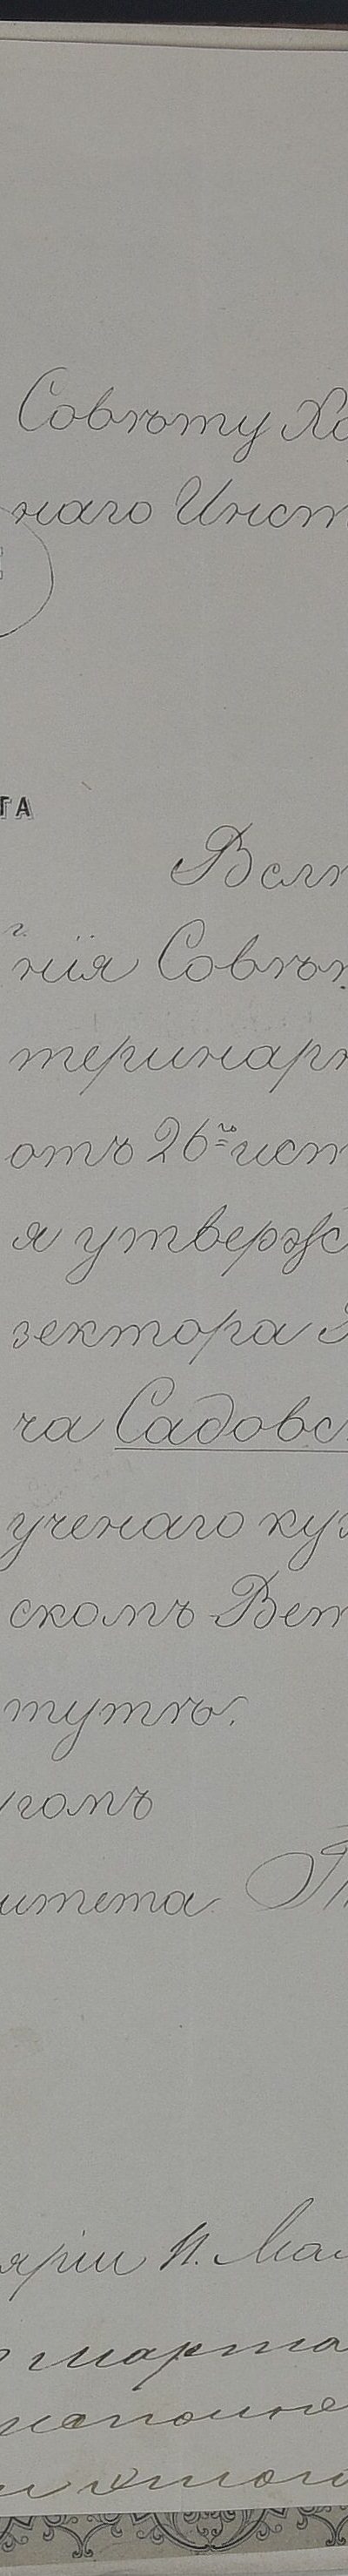 Совѣту Ха
наго Инст
ТА
Вслѣ
г.
нія Совѣт
теринарн
отъ 26го ист
я утвержд
зектора
ча Садовс
ученаго куз
скомъ Вет
тутѣ.
гомъ
итета
яріи И. Ма
марта
исполне